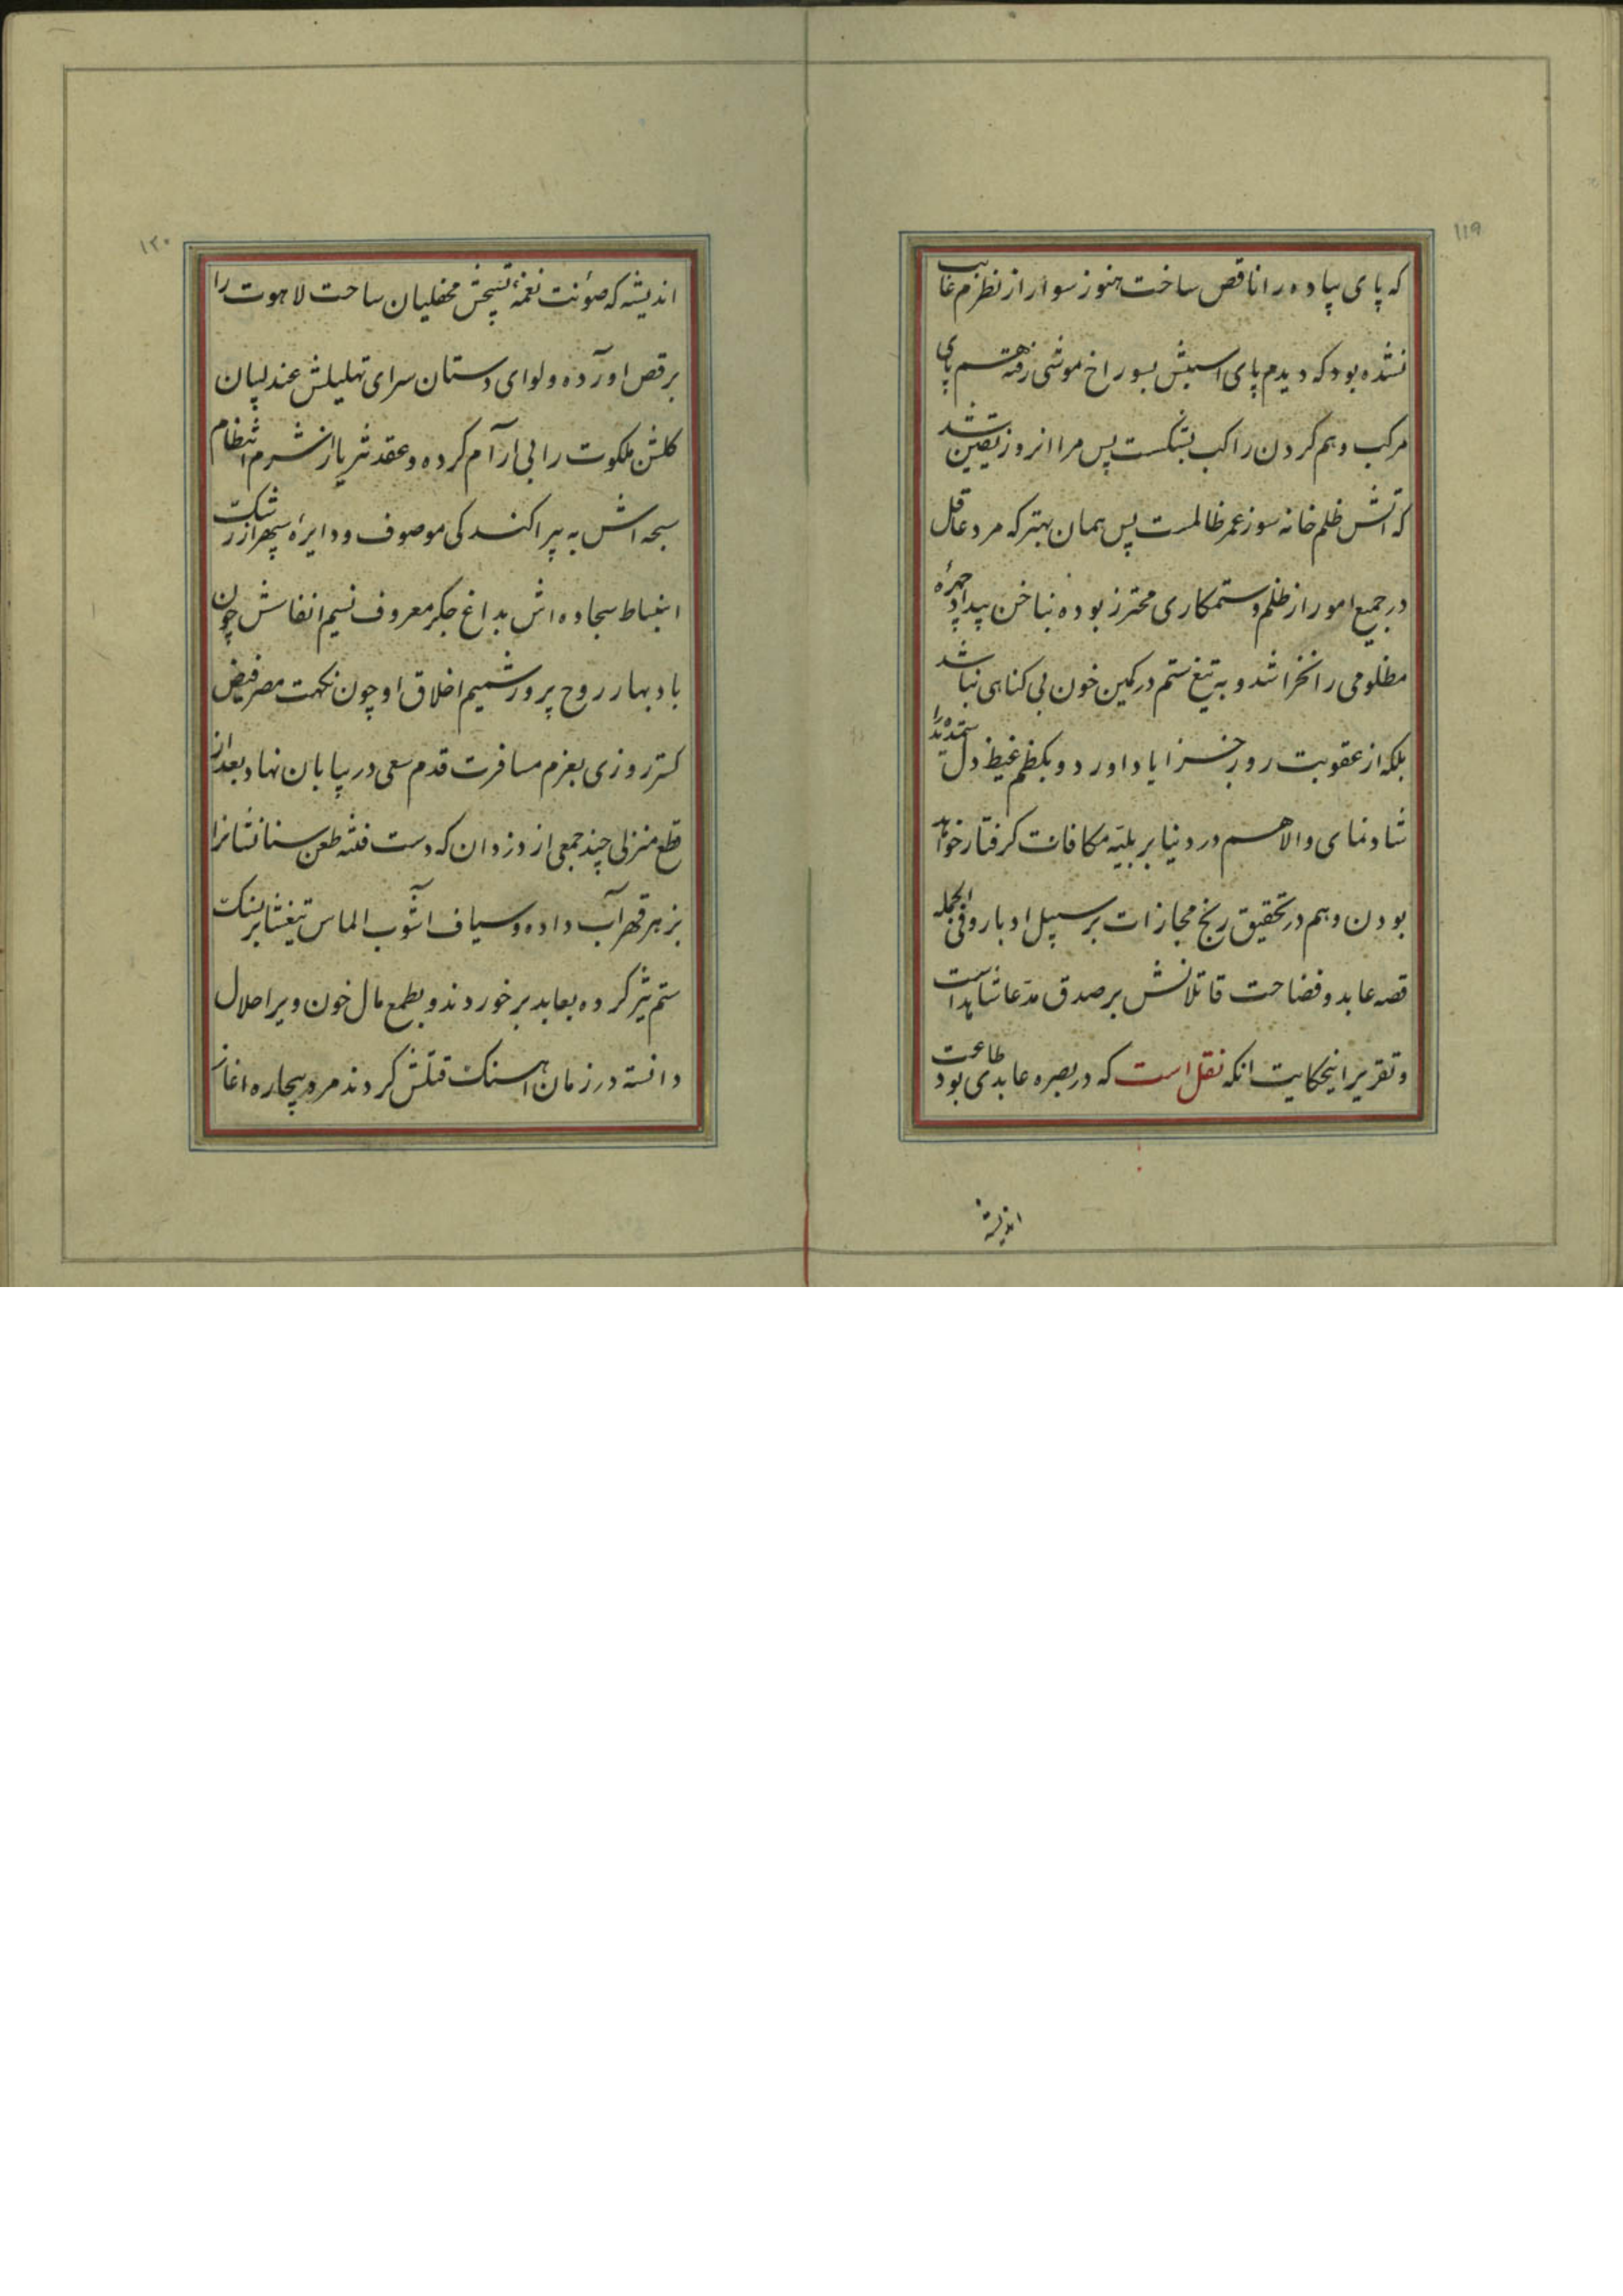 ۱۱۹
که پای پیاده را ناقص ساخت هنوز سوار از نظرم غایب
نشده بود که دیدم پای اسبش بسوراخ موشی رفته هم پای
مرکب و هم کردن راکب بشکست پس مرا انروز یقین شد
که اتش ظلم خانه سوز عمر ظالمست پس همان بهتر که مرد عاقل
در جمیع امور از ظلم و ستمکاری محترز بوده بناخن بیداد چهرهٔ
مظلومی را نخراشد و به تیغ ستم در کمین خون بی کناهی نباشد
بلکه از عقوبت روز جزا یاد اورد و بکظم غیظ دل ستمدیده را
شاد نمای والا هم در دنیا بر بلیّه مکافات کرفتار خواهد
بودن و هم در تحقیق رنج مجازات بر سبیل ادبار و فی الجمله
قصه عابد و فضاحت قاتلانش بر صدق مدّعا شاهد است
و تقریر اینحکایت انکه نقل است که در بصره عابدی بود طاعت
اندیشه
۱۲۰
اندیشه که صوٴنت نغمهٔ تسبیحش محفلیان ساحت لاهوت را
برقص اورده و لوای دستان سرای تهلیلش عندلیبان
کلشن ملکوت را بی ارآم کرده و عقد ثریا از شرم انتظام
سبحه اش به پیراکندکی موصوف و دایرهٔ سپهر از رشک
انبساط سجاده اش بداغ جکر معروف نسیم انفاسش چون
باد بهار روح پرور شمیم اخلاق او چون نکهت مصر فیض
کستر روزی بعزم مسافرت قدم سعی در بیابان نهاد بعد از
قطع منزلی چند جمعی از دزدان که دست فتنه طعن سنانشانرا
بزهر قهر آب داده و سیاف اشوب الماس تیغشانرا بسنک
ستم تیز کرده بعابد برخوردند و بطمع مال خون ویرا حلال
دانسته در زمان اهسنک قتلش کردند مرد بیچاره اغاز